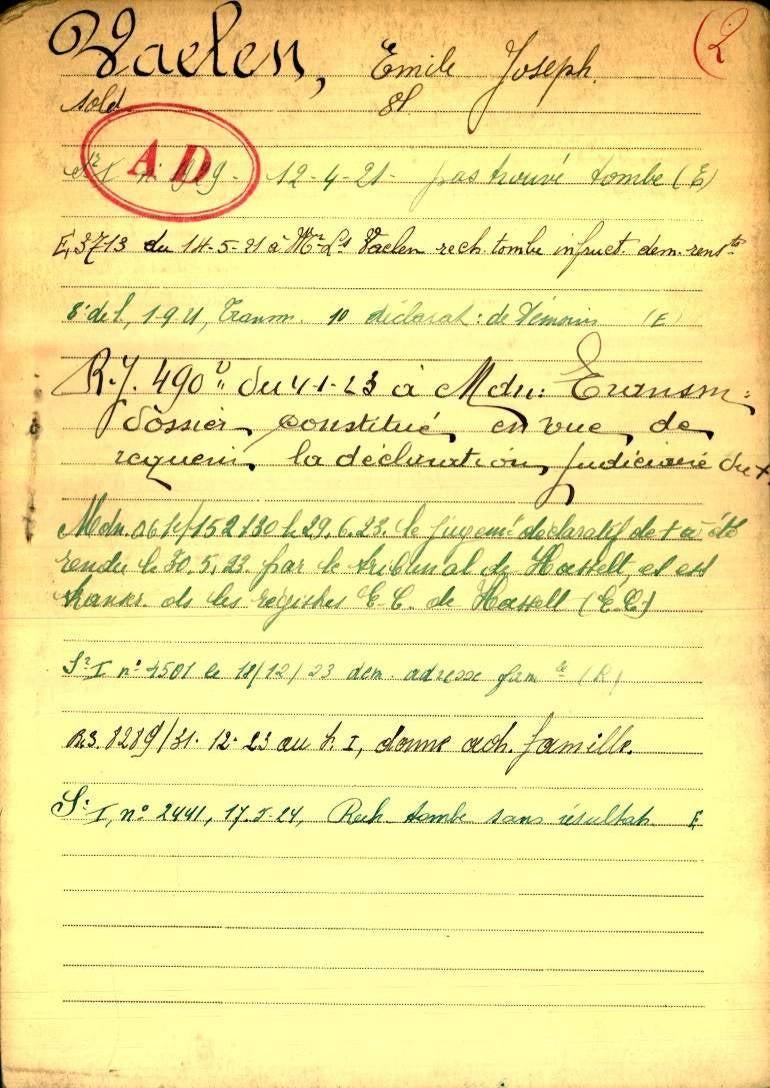 Vaelen, Emile Joseph. (2)
sold. 8l
AD
Sr I n° 1929 - 12-4-21 - pas trouvé tombe (E)
E, 3713 du 14-5-21 à Mr Ls Vaelen rech. tombe infruct. dem. rensts
8° de l, 1-9-21, Transm. 10 déclarat: de témoins (E)
R.J. 490 du 4-1-23 à Mdn: Transm:
dossier constitué en vue de
requérir la déclaration judiciaire du +
Mdn. 152130 le 29.6.23. le jugemt déclaratif de + a été
rendu le 30.5.23 par le tribunal de Hasselt, et est
transcr. ds les registres E.C. de Hasselt (E.C)
Sr I n° 4501 le 18/12/23 dem. adresse fam le (R)
R.S. 8289/31-12-23 au S. I, donne adr. famille.
Sr I, n° 2441, 17-5-24, Rech. tombe sans résultat. E